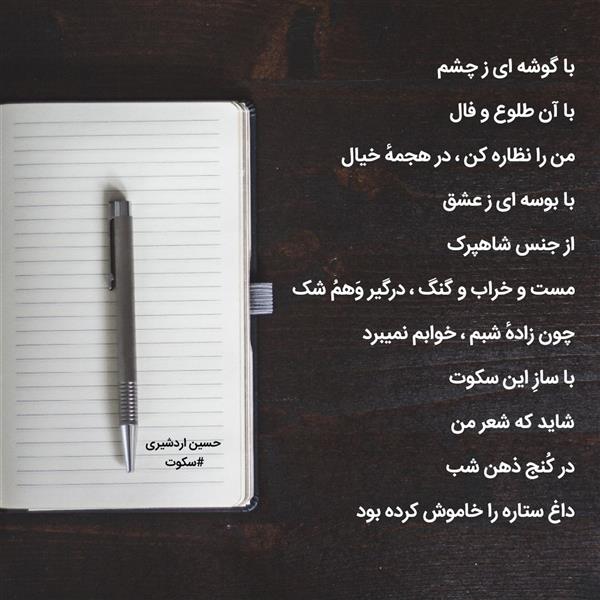 با گوشه ای ز چشم
با آن طلوع و فال
من را نظاره کن ، در هجمهٔ خیال
با بوسه ای ز عشق
از جنس شاهپرک
مست و خراب و گنگ ، درگیر وَهمُ شک
چون زادهٔ شبم ، خوابم نمیبرد
با سازِ این سکوت
شاید که شعر من
در کُنج ذهن شب
داغ ستاره را خاموش کرده بود
حسین اردشیری
#سکوت